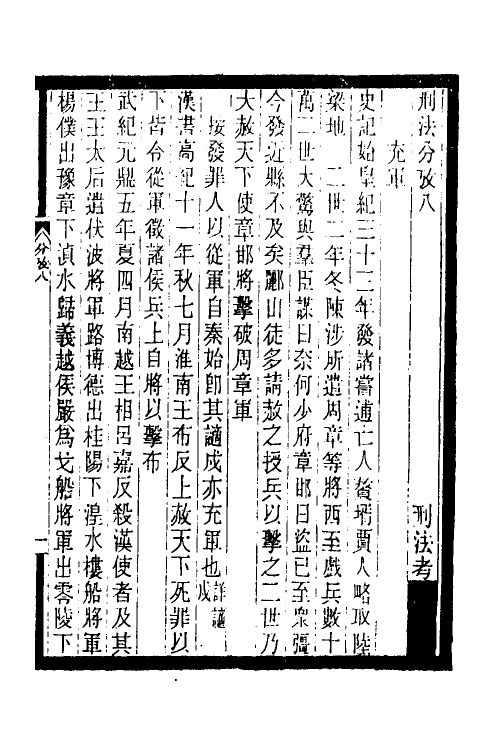 刑法分攷八　刑法考
充軍
史記始皇紀三十三年發諸嘗逋亡人贅壻賈人略取陸
梁地　二世二年冬陳涉所遣周章等將西至戲兵數十
萬二世大驚與羣臣謀曰柰何少府章邯曰盜已至衆彊
今發近縣不及矣酈山徒多請赦之授兵以擊之二世乃
大赦天下使章邯將擊破周章軍
按發罪人以從軍自秦始卽其謫戍亦充軍也詳謫戍
漢書高紀十一年秋七月淮南王布反上赦天下死罪以
下皆令從軍徵諸侯兵上自將以擊布
武紀元鼎五年夏四月南越王相呂嘉反殺漢使者及其
王王太后遣伏波將軍路博德出桂陽下湟水樓船將軍
楊僕出豫章下湞水歸義越侯嚴爲戈船將軍出零陵下
分攷八
一